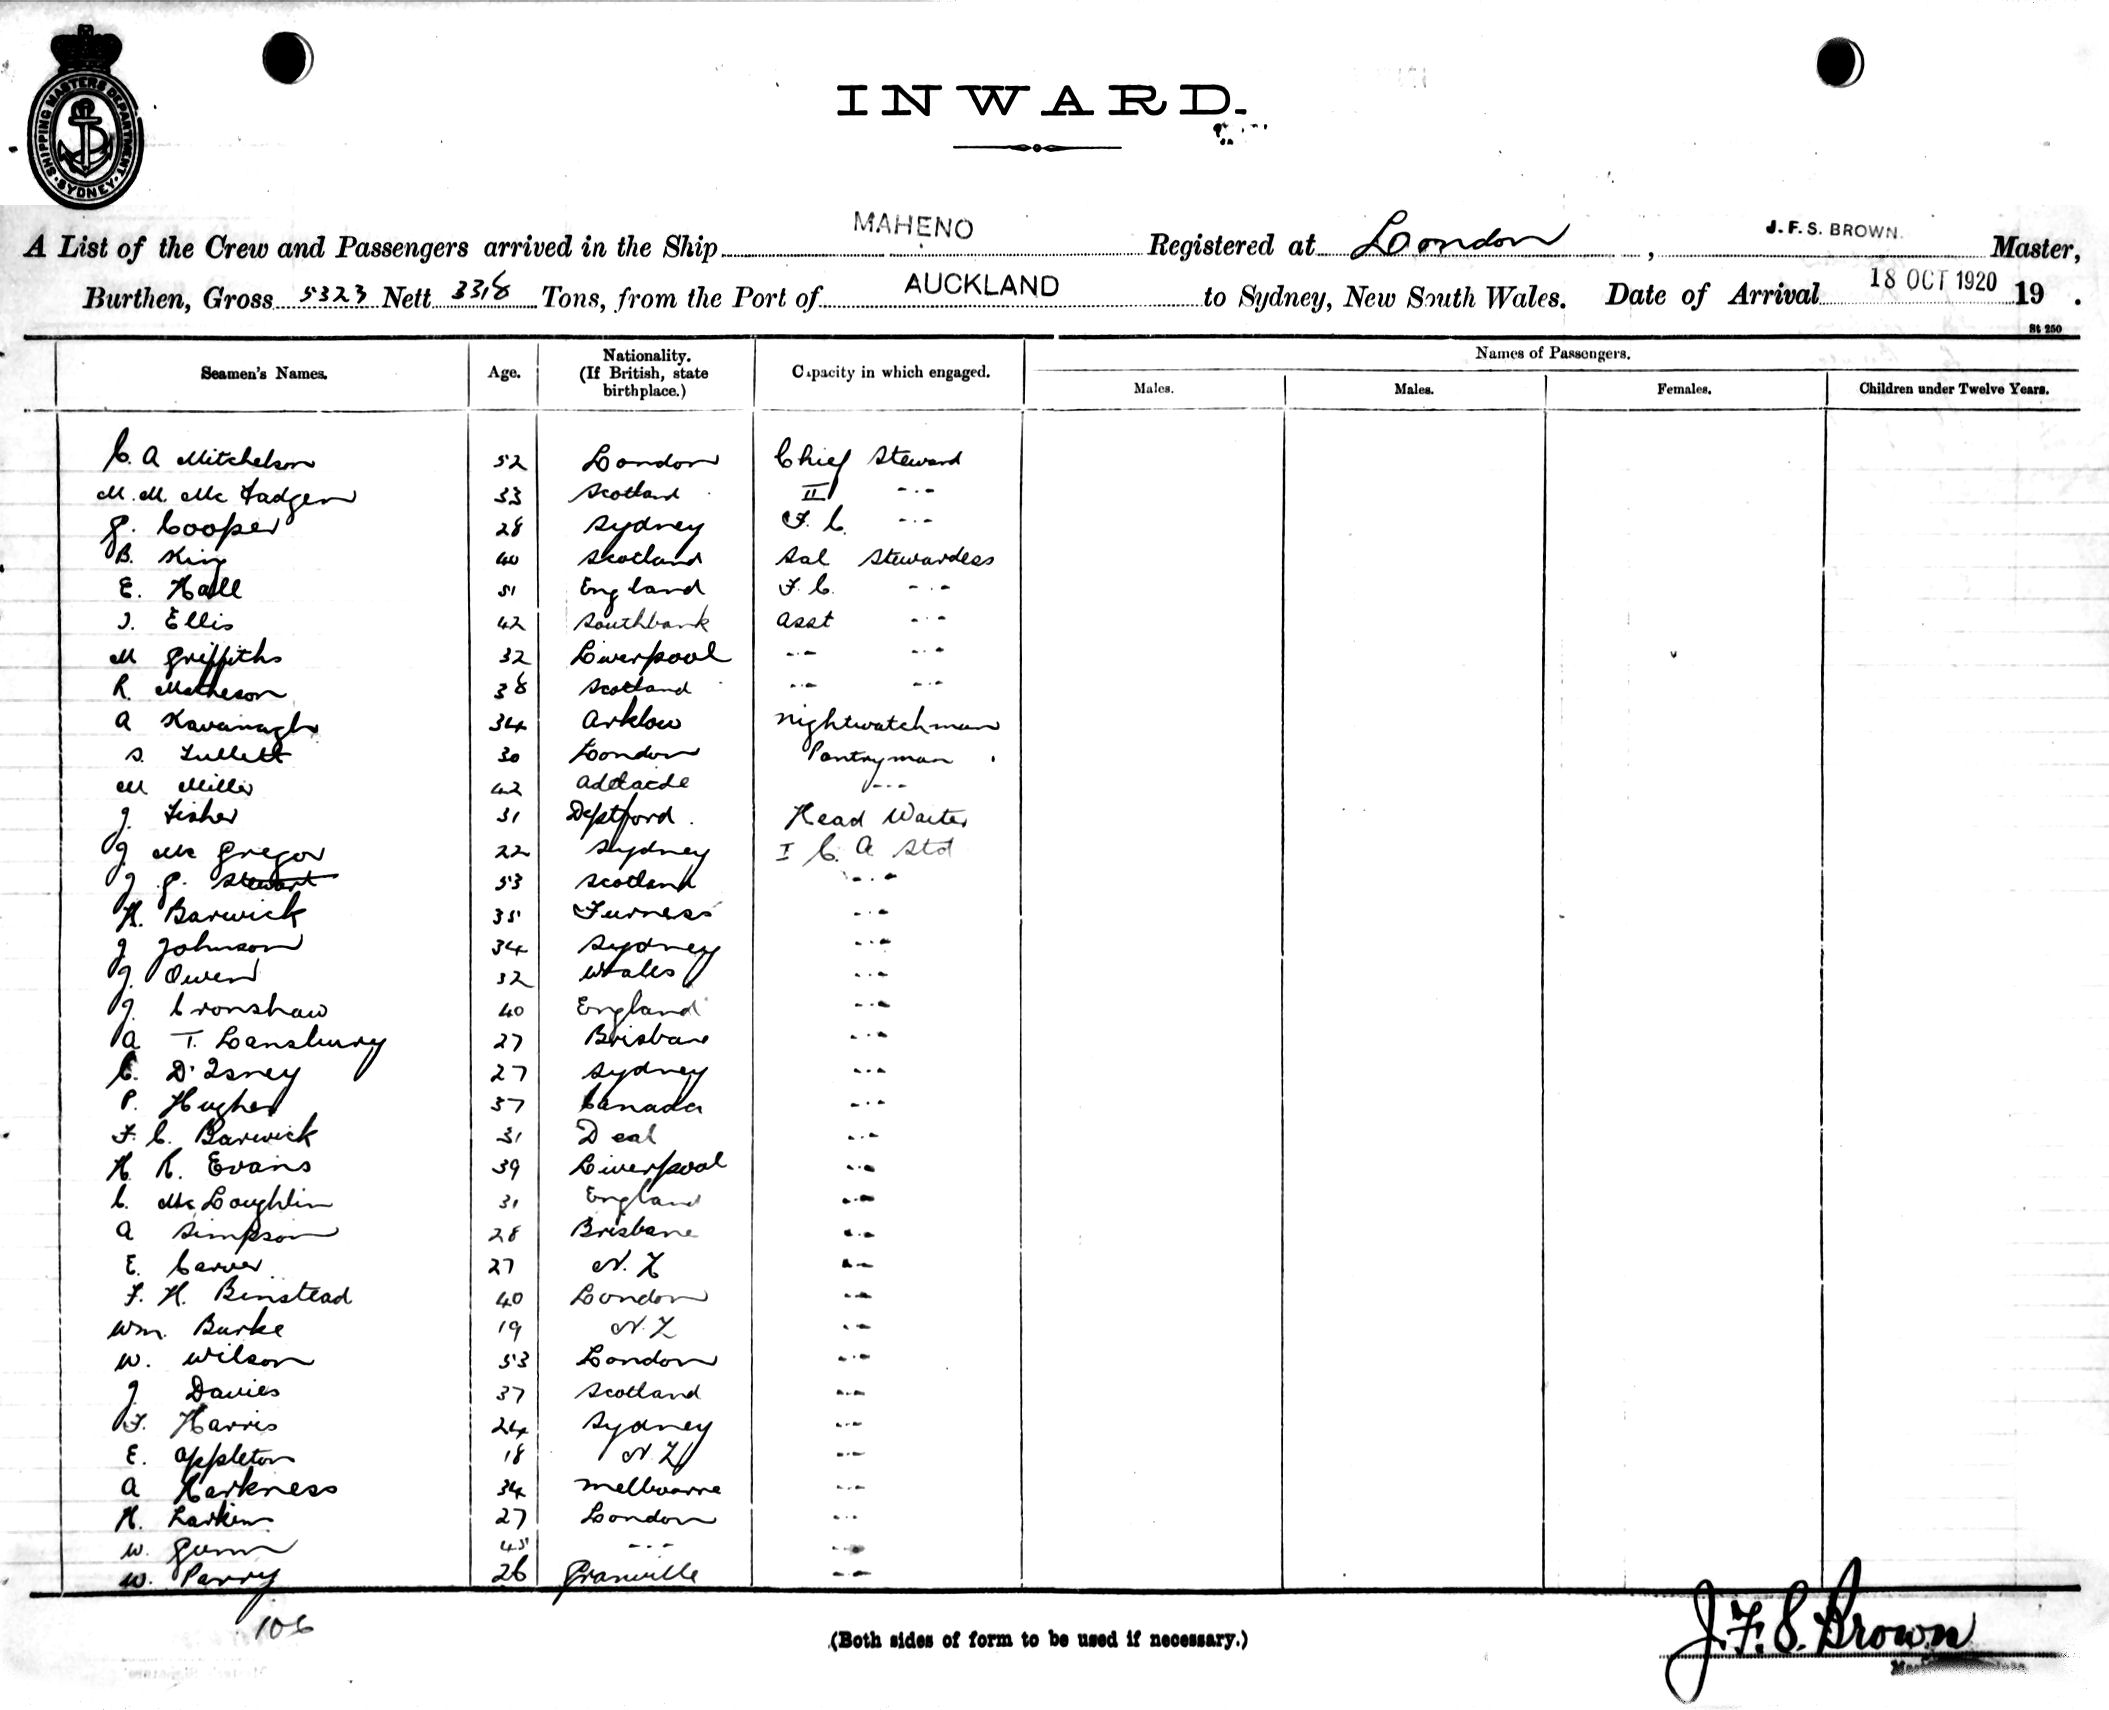 SHIPPING MASTERS DEPARTMENT
SYDNEY
INWARD.
A List of the Crew and Passengers arrived in the Ship MAHENO Registered at London, J.F.S. BROWN. Master,
Burthen, Gross 5323 Nett 3318 Tons, from the Port of AUCKLAND to Sydney, New South Wales. Date of Arrival 18 OCT 1920 19 .
St 250
Seamen's Names. Age. Nationality. (If British, state birthplace.) Capacity in which engaged. Names of Passengers.
Males. Males. Females. Children under Twelve Years.
C. A Mitchelson 52 London Chief Steward
M. M. Mc Fadgen 33 Scotland II -.-
G. Cooper 28 Sydney F. C. -.-
B. King 40 Scotland Sal Stewardess
E. Hall 51 England F. C. -.-
J. Ellis 42 Southbank Asst -.-
M Griffiths 32 Liverpool -.- -.-
R. Matheson 38 Scotland -.- -.-
A Kavanagh 34 Arklow Nightwatchman
S. Tullett 30 London Pantryman
M Miller 42 Adelaide -.-
J. Fisher 31 Deptford. Head Waiter
J. Mc Gregor 22 Sydney I C. A Std
J. G. Stewart 53 Scotland -.-
H. Barwick 35 Furness -.-
J Johnson 34 Sydney -.-
J. Owen 32 Wales -.-
J. Cronshaw 40 England -.-
A T. Lansbury 27 Brisbane -.-
C. D'Isney 27 Sydney -.-
P. Hughes 37 Canada -.-
F. C. Barwick 31 Deal -.-
H R. Evans 39 Liverpool -.-
C. Mc Loughlin 31 England -.-
A Simpson 28 Brisbane -.-
E. Carver 27 N. Z -.-
F. H. Binstead 40 London -.-
Wm. Burke 19 N. Z -.-
W. Wilson 53 London -.-
J Davies 37 Scotland -.-
F. Harris 24 Sydney -.-
E. Appleton 18 N. Z -.-
A Harkness 34 Melbourne -.-
H. Larkin 27 London -.-
W. Gunn 45 -.- -.-
W. Parry 26 Granville -.-
106
(Both sides of form to be used if necessary.)
J.F.S. Brown